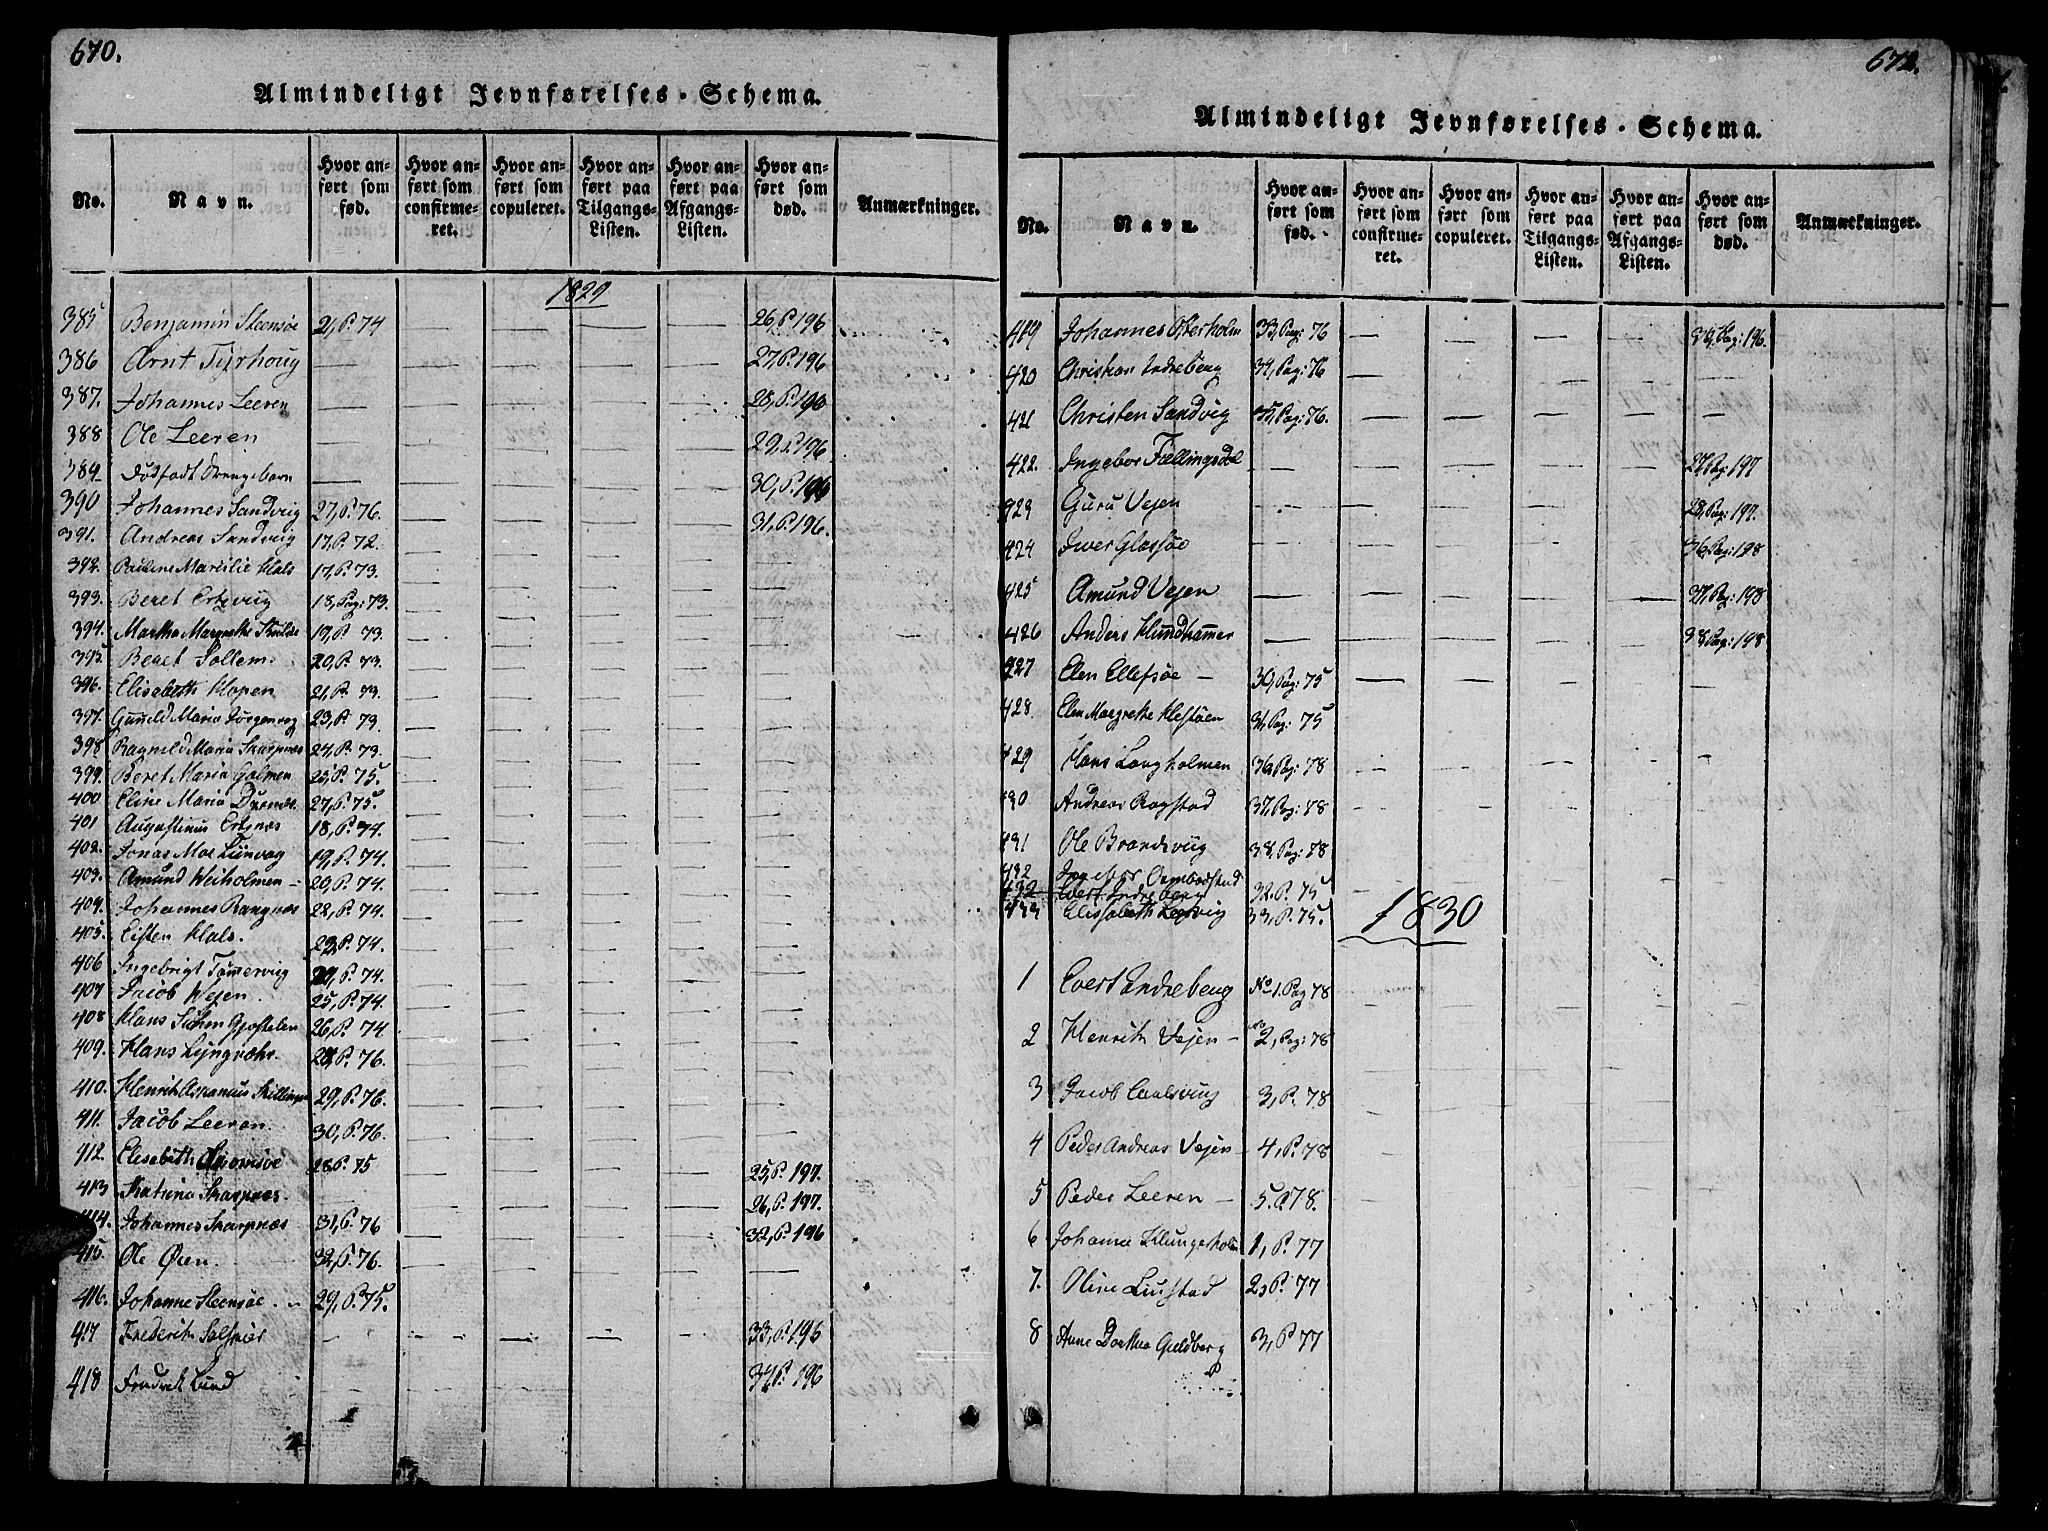 670.
Almindeligt Jevnførelses-Schema.
No. | Navn. | Hvor anført som fød. | Hvor anført som confirmeret. | Hvor anført som copuleret. | Hvor anført paa Tilgangs-Listen. | Hvor anført paa Afgangs-Listen. | Hvor anført som død. | Anmærkninger.
1829
385 Benjamin Steensøe 21, P. 74 — 26, P. 196
386 Arnt Tyrhoug — 27, P. 196
387. Johannes Leeren — 28, P. 196
388 Ole Leeren — 29, P. 196
389 Dødfødt Drengebarn — 30, P. 196
390 Johannes Sandvig 27, P. 76. — 31, P. 196.
391. Andreas Sandvig 17, P. 72. —
392. Pauline Marselie Hals 17, P. 73. —
393. Beret Ertzviig 18, Pag: 73. —
394. Martha Margrethe 19, P. 73. —
395. Beret Sollem. 20, P. 73. —
396. Elisabeth Hopen 21, P. 73. —
397. Gunneld Maria Jørgenvog 23, P. 73 —
398 Ragneld Maria Skarpnæs 24, P. 73. —
399. Beret Maria Golmen 25, P. 75. —
400 Eline Maria 27, P. 75. —
401 Augustinus Ertznæs 18, P. 74. —
402. Jonas Moe 19, P. 74. —
403. Amund Weiholmen 20, P. 74. —
404. Johannes Rangnæs 22, P. 74. —
405. Eisten Hals. 23, P. 74. —
406 Ingebrigt Tømmervig 24, P. 74. —
407 Jacob Wejen. 25, P. 74 —
408 Hans Gjøstelen 26, P. 74 —
409. Hans Lyngvær. 28, P. 76. —
410. Henrik 29, P. 76. —
411. Jacob Leeren. 30, P. 76. —
412. Elisabeth 28 P. 75 — 25, P. 197.
413 Katrina Skarpnæs. — 26, P. 197.
414. Johannes Skarpnæs 31, P. 76 — 32, P. 196
415. Ole Øien. 32, P. 76. —
416. Johanne Steensøe. 29, P. 75. —
417 Frederik — 33, P. 196
418 Fredrik Lund — 34 P. 196
672.
Almindeligt Jevnførelses-Schema.
No. | Navn. | Hvor anført som fød. | Hvor anført som confirmeret. | Hvor anført som copuleret. | Hvor anført paa Tilgangs-Listen. | Hvor anført paa Afgangs-Listen. | Hvor anført som død. | Anmærkninger.
419 Johannes Osterholm 33, Pag: 76 — Pag: 196.
420 Christian Indreberg 34, Pag: 76 —
421 Christen Sandvig 35, Pag: 76. —
422. Ingebor Fællingsdal — 27, Pag: 197
423 Guru Vejen — 28, Pag: 197.
424 Iver Glassøe — 36, Pag: 198
425 Amund Vejen — 37, Pag: 198
426 Anders — 38 Pag: 198
427 Elen Ellefsøe — 30, Pag: 75 —
428. Elen Margrethe 31, Pag: 75 —
429 Hans Langholmen 36, Pag: 78 —
430 Andreas Rogstad 37, Pag: 78 —
431 Ole Brandsviig 38, Pag: 78 —
432 Ingebor Ormbostad 32. P. 75
432 Evert Indreberg
433 Elissabeth 33, P. 75.
1830
1 Evert Indreberg No 1. Pag 78
2 Henrik Vejen — No 2, Pag: 78
3 Jacob 3, P. 78
4 Peder Andreas Vejen 4, P. 78
5 Peder Leeren — 5. P. 78.
6 Johanne Klungerholm 1, P. 77
7. Oline Liustad 2, P. 77
8 Anne Dorthea Guldberg 3, P. 77